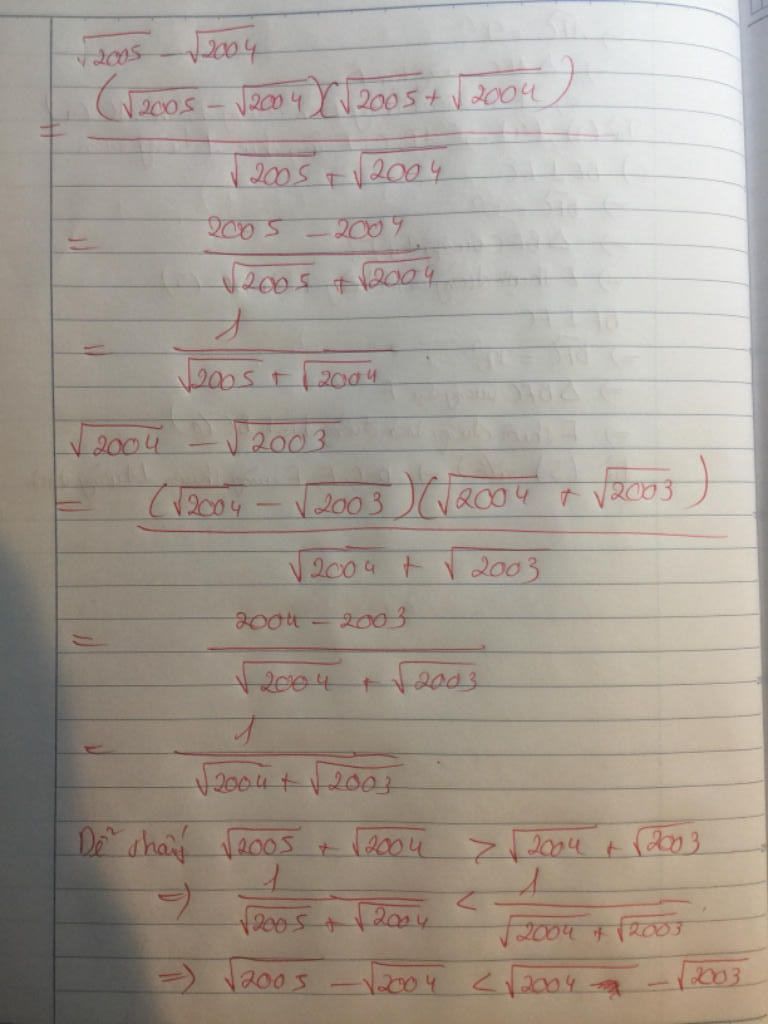 √2005 − √2004
= (√2005 − √2004)(√2005 + √2004)
√2005 + √2004
= 2005 − 2004
√2005 + √2004
= 1
√2005 + √2004
√2004 − √2003
= (√2004 − √2003)(√2004 + √2003)
√2004 + √2003
= 2004 − 2003
√2004 + √2003
= 1
√2004 + √2003
Dễ thấy √2005 + √2004 > √2004 + √2003
=> 1 < 1
√2005 + √2004 √2004 + √2003
=> √2005 − √2004 < √2004 − √2003